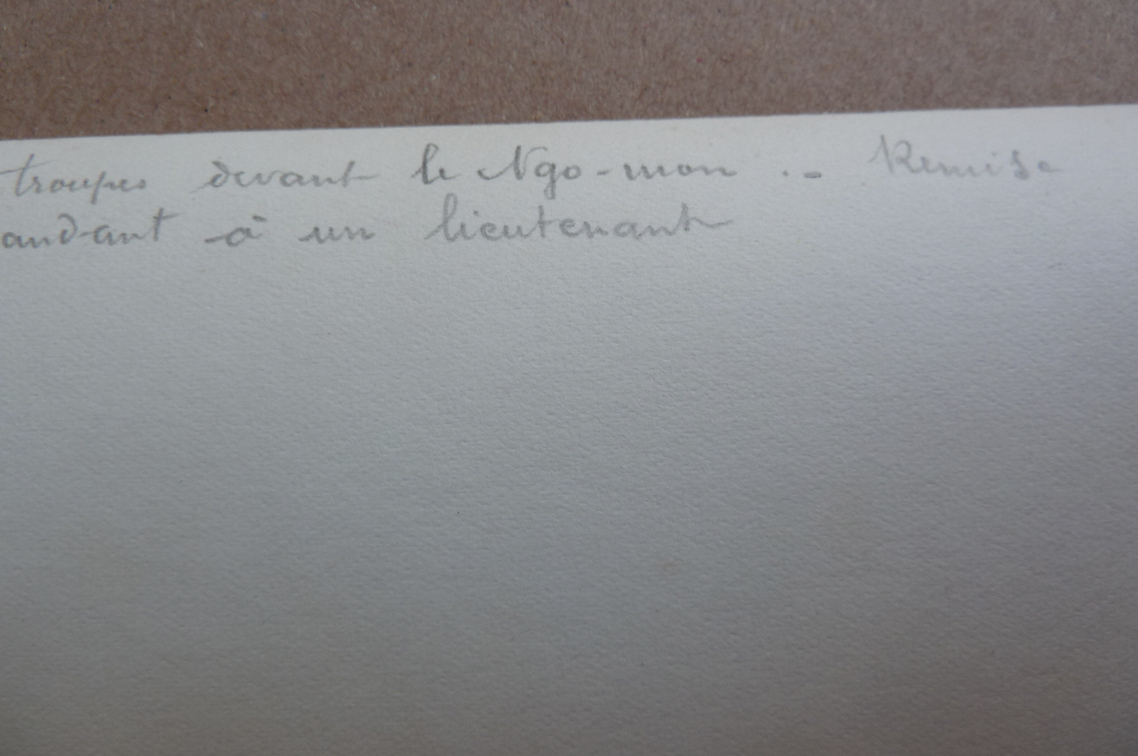 troupes devant le Ngo-mon .- Remise
andant à un lieutenant